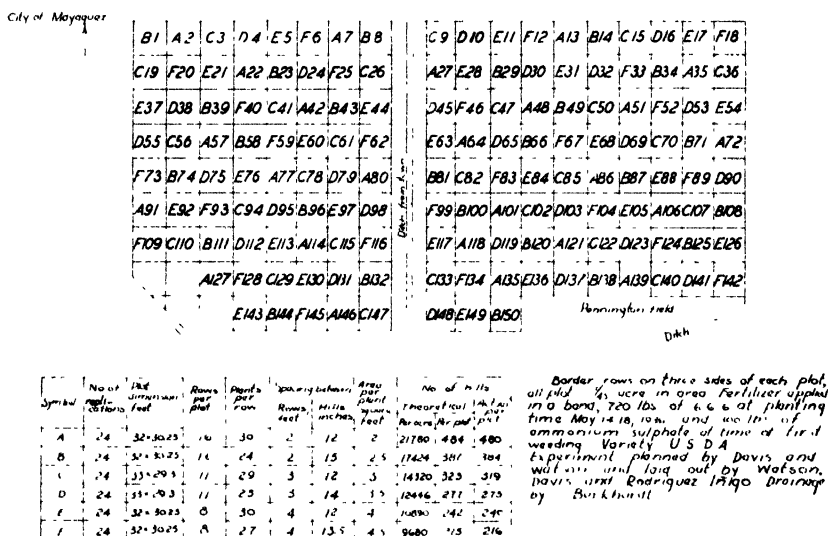 City of Mayaguez
B1 A2 C3 D4 E5 F6 A7 B8 C9 D10 E11 F12 A13 B14 C15 D16 E17 F18
C19 F20 E21 A22 B23 D24 F25 C26 A27 E28 B29 D30 E31 D32 F33 B34 A35 C36
E37 D38 B39 F40 C41 A42 B43 E44 D45 F46 C47 A48 B49 C50 A51 F52 D53 E54
D55 C56 A57 B58 F59 E60 C61 F62 E63 A64 D65 B66 F67 E68 D69 C70 B71 A72
F73 B74 D75 E76 A77 C78 D79 A80 B81 C82 F83 E84 C85 A86 B87 E88 F89 D90
A91 E92 F93 C94 D95 B96 E97 D98 F99 B100 A101 C102 D103 F104 E105 A106 C107 B108
F109 C110 B111 D112 E113 A114 C115 F116 E117 A118 D119 B120 A121 C122 D123 F124 B125 E126
A127 F128 C129 E130 D131 B132 C133 F134 A135 E136 D137 B138 A139 C140 D141 F142
E143 B144 F145 A146 C147 D148 E149 B150
Ditch from
Pennington field
Ditch
Symbol No of repli-cations Plot dimension feet Rows per plot Plants per row Spacing between Rows feet Hills inches Area per plant square feet No of hills Theoretical Per acre Per plot Actual per plot
A 24 32×30.25 16 30 2 12 2 21780 484 480
B 24 32×30.25 16 24 2 15 2.5 17424 387 384
C 24 33×29.3 11 29 3 12 3 14520 323 319
D 24 33×29.3 11 25 3 14 3.5 12446 277 275
E 24 32×30.25 8 30 4 12 4 10890 242 240
F 24 32×30.25 8 27 4 13.5 4.5 9680 215 216
Border rows on three sides of each plot,
all plot 1/45 acre in area Fertilizer applied
in a band, 720 lbs of 6 6 6 at planting
time May 14-18, and lbs of
ammonium sulphate at time of first
weeding Variety U S D A
Experiment planned by Davis and
Watson and laid out by Watson,
Davis and Rodriguez Iñigo Drainage
by Burkhardt